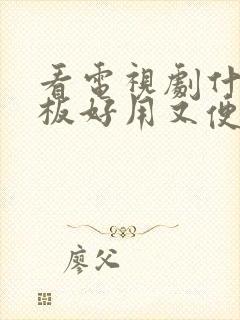 看電視劇什
板好用又便
廖父